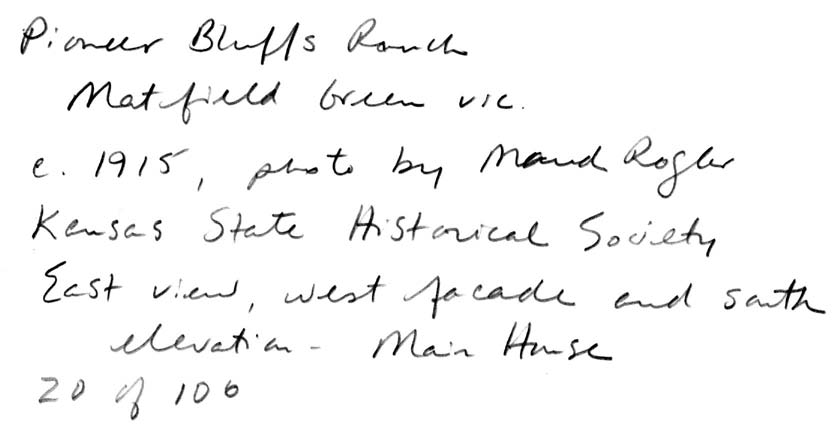 Pioneer Bluffs Ranch
Matfield Green vic.
c. 1915, photo by Maud Rogler
Kansas State Historical Society
East view, west facade and south
elevation - Main House
20 of 106